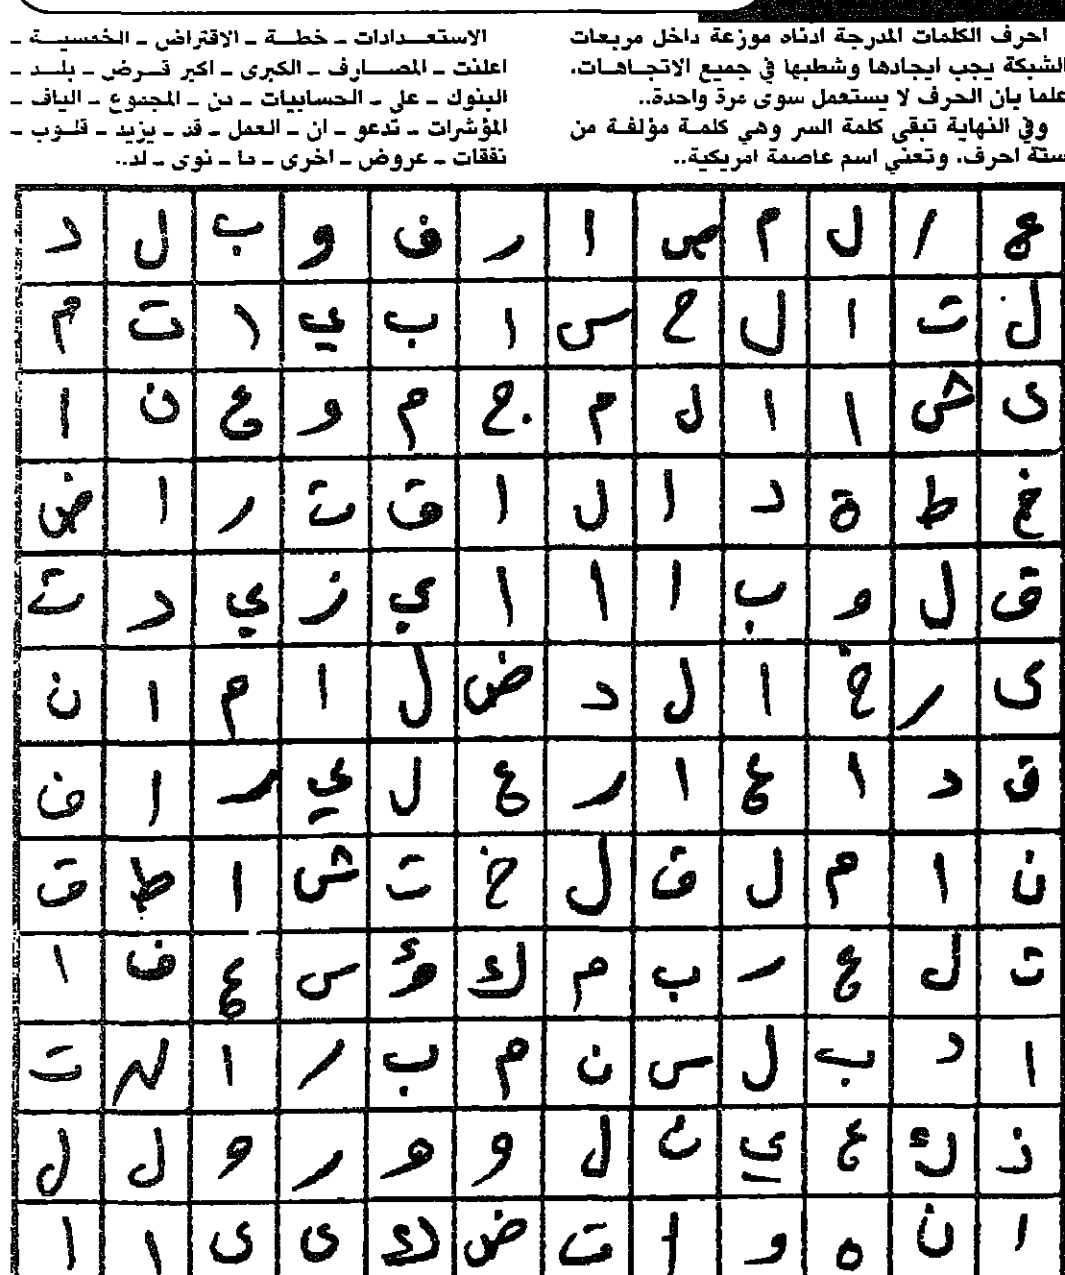 احرف الكلمات المدرجة ادناه موزعة داخل مربعات
الشبكة يجب ايجادها وشطبها في جميع الاتجاهات،
علما بان الحرف لا يستعمل سوى مرة واحدة..
وفي النهاية تبقى كلمة السر وهي كلمة مؤلفة من
ستة احرف، وتعني اسم عاصمة امريكية..
الاستعدادات - خطة - الاقتراض - الخمسية -
اعلنت - المصارف - الكبرى - اكبر قرض - بلد -
البنوك - على - الحسابيات - من - المجموع - الياف -
المؤشرات - تدعو - ان - العمل - قد - يزيد - قلوب -
نفقات - عروض - اخرى - ما - نوى - لد..
ع ا ل م ص ا ر ف و ب ل د
ل ت ا ل ح س ا ب ي ا ت م
ى ش ا ا ل م ج م و ع ن ا
خ ط ة د ا ل ا ق ت ر ا ض
ق ل و ب ا ا ا ي ز ي د ت
ى ر خ ا ل د ض ل ا م ا ن
ق د ا ع ا ر ع ل ي ر ا ف
ن ا م ل ق ل خ ت ش ا ط ق
ت ل ع ر ب م ك ؤ س ع ف ا
ا د ب ل س ن م ب ر ا ل ت
ن ك ع ي ن ل و و ر و ل ل
ا ن ه و ا ت ض ك ى ى ا ا